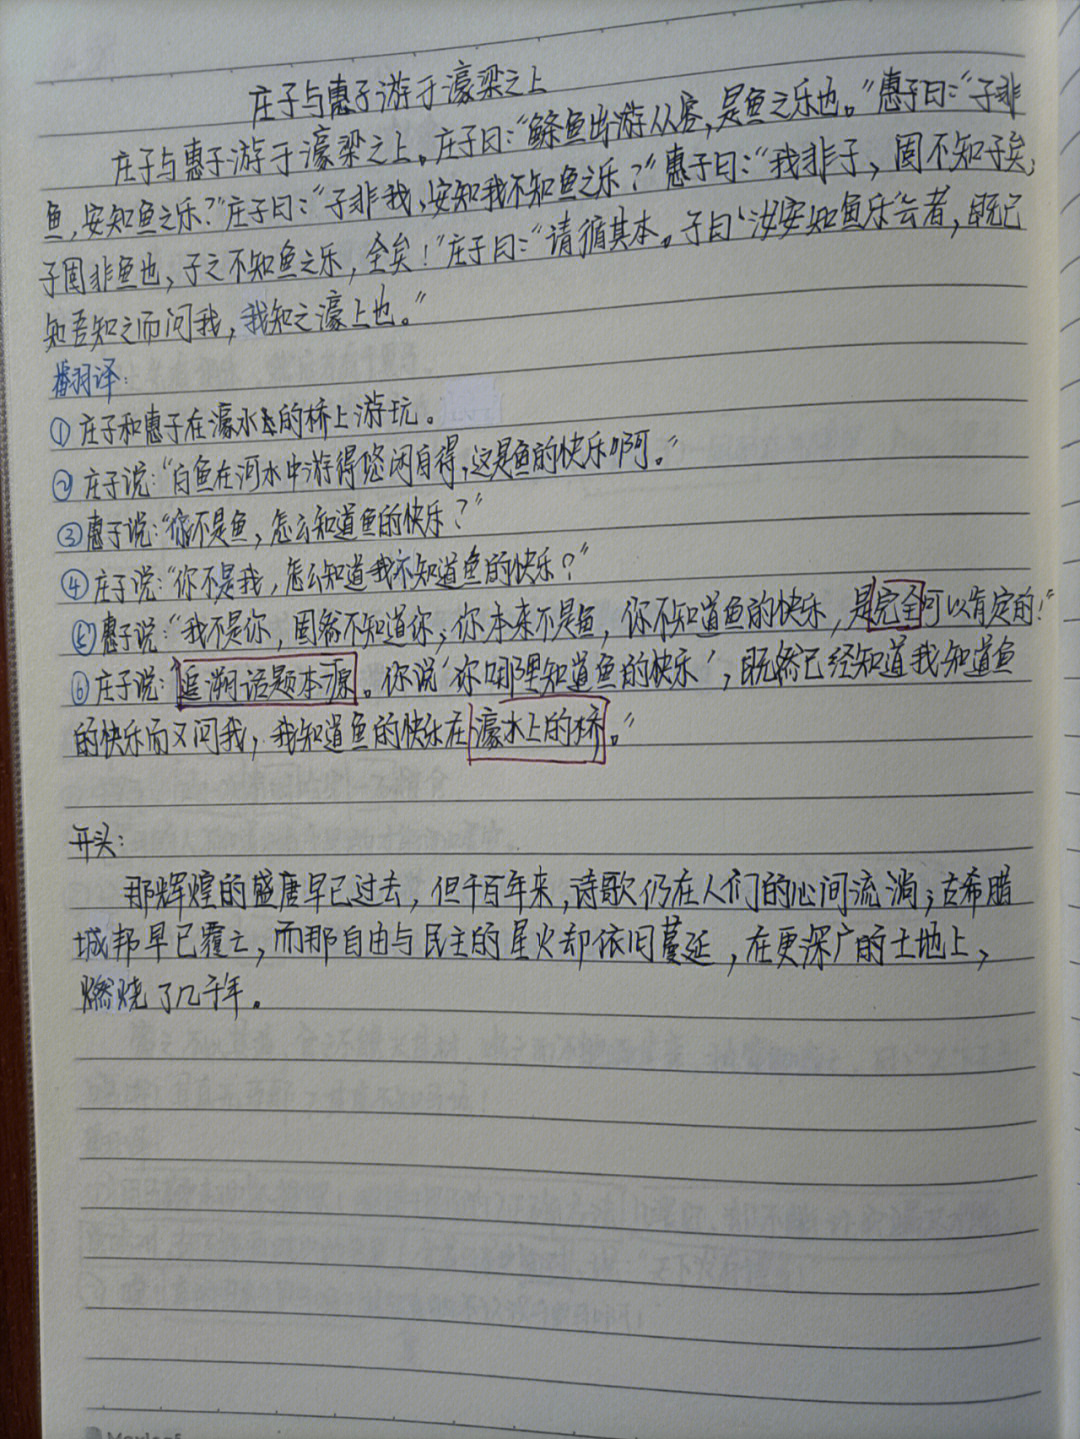 庄子与惠子游于濠梁之上
庄子与惠子游于濠梁之上。庄子曰：“鲦鱼出游从容，是鱼之乐也。”惠子曰：“子非
鱼，安知鱼之乐？”庄子曰：“子非我，安知我不知鱼之乐？”惠子曰：“我非子，固不知子矣；
子固非鱼也，子之不知鱼之乐，全矣！”庄子曰：“请循其本。子曰‘汝安知鱼乐’云者，既已
知吾知之而问我，我知之濠上也。”
翻译：
①庄子和惠子在濠水的桥上游玩。
②庄子说：“白鱼在河水中游得悠闲自得，这是鱼的快乐啊。”
③惠子说：“你不是鱼，怎么知道鱼的快乐？”
④庄子说：“你不是我，怎么知道我不知道鱼的快乐？”
⑤惠子说：“我不是你，固然不知道你；你本来不是鱼，你不知道鱼的快乐，是完全可以肯定的！”
⑥庄子说：“追溯话题本源。你说‘你哪里知道鱼的快乐’，既然已经知道我知道鱼
的快乐而又问我，我知道鱼的快乐在濠水上的桥。”
开头：
那辉煌的盛唐早已过去，但千百年来，诗歌仍在人们的心间流淌；古希腊
城邦早已覆亡，而那自由与民主的星火却依旧蔓延，在更深广的土地上，
燃烧了几千年。